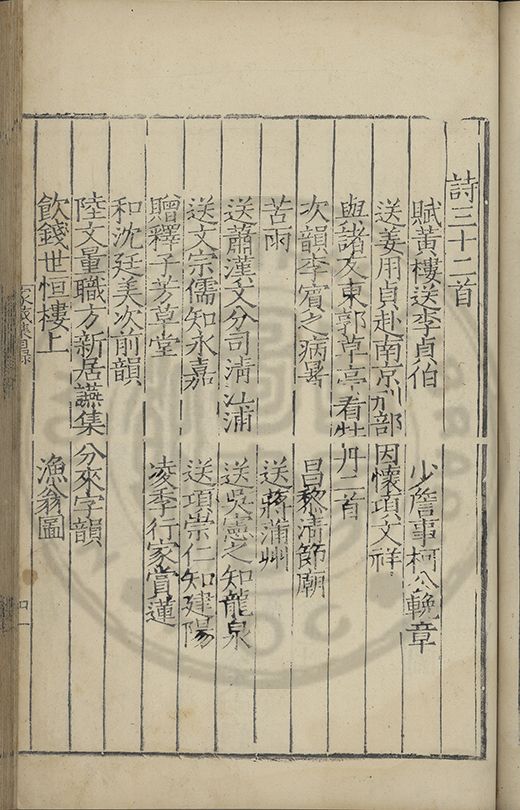 詩三十二首
賦黃樓送李貞伯　少詹事柯公輓章
送姜用貞赴南京刑部因懷項文祥
與諸友東郭草亭看牡丹二首
次韻李賓之病暑　昌黎清節廟
苦雨　送蔣蒲州
送蕭漢文分司清江浦　送吳憲之知龍泉
送文宗儒知永嘉　送項崇仁知建陽
贈釋子芳草堂　凌季行家賞蓮
和沈廷美次前韻
陸文量職方新居讌集分來字韻
飲錢世恒樓上　漁翁圖
家藏集目錄